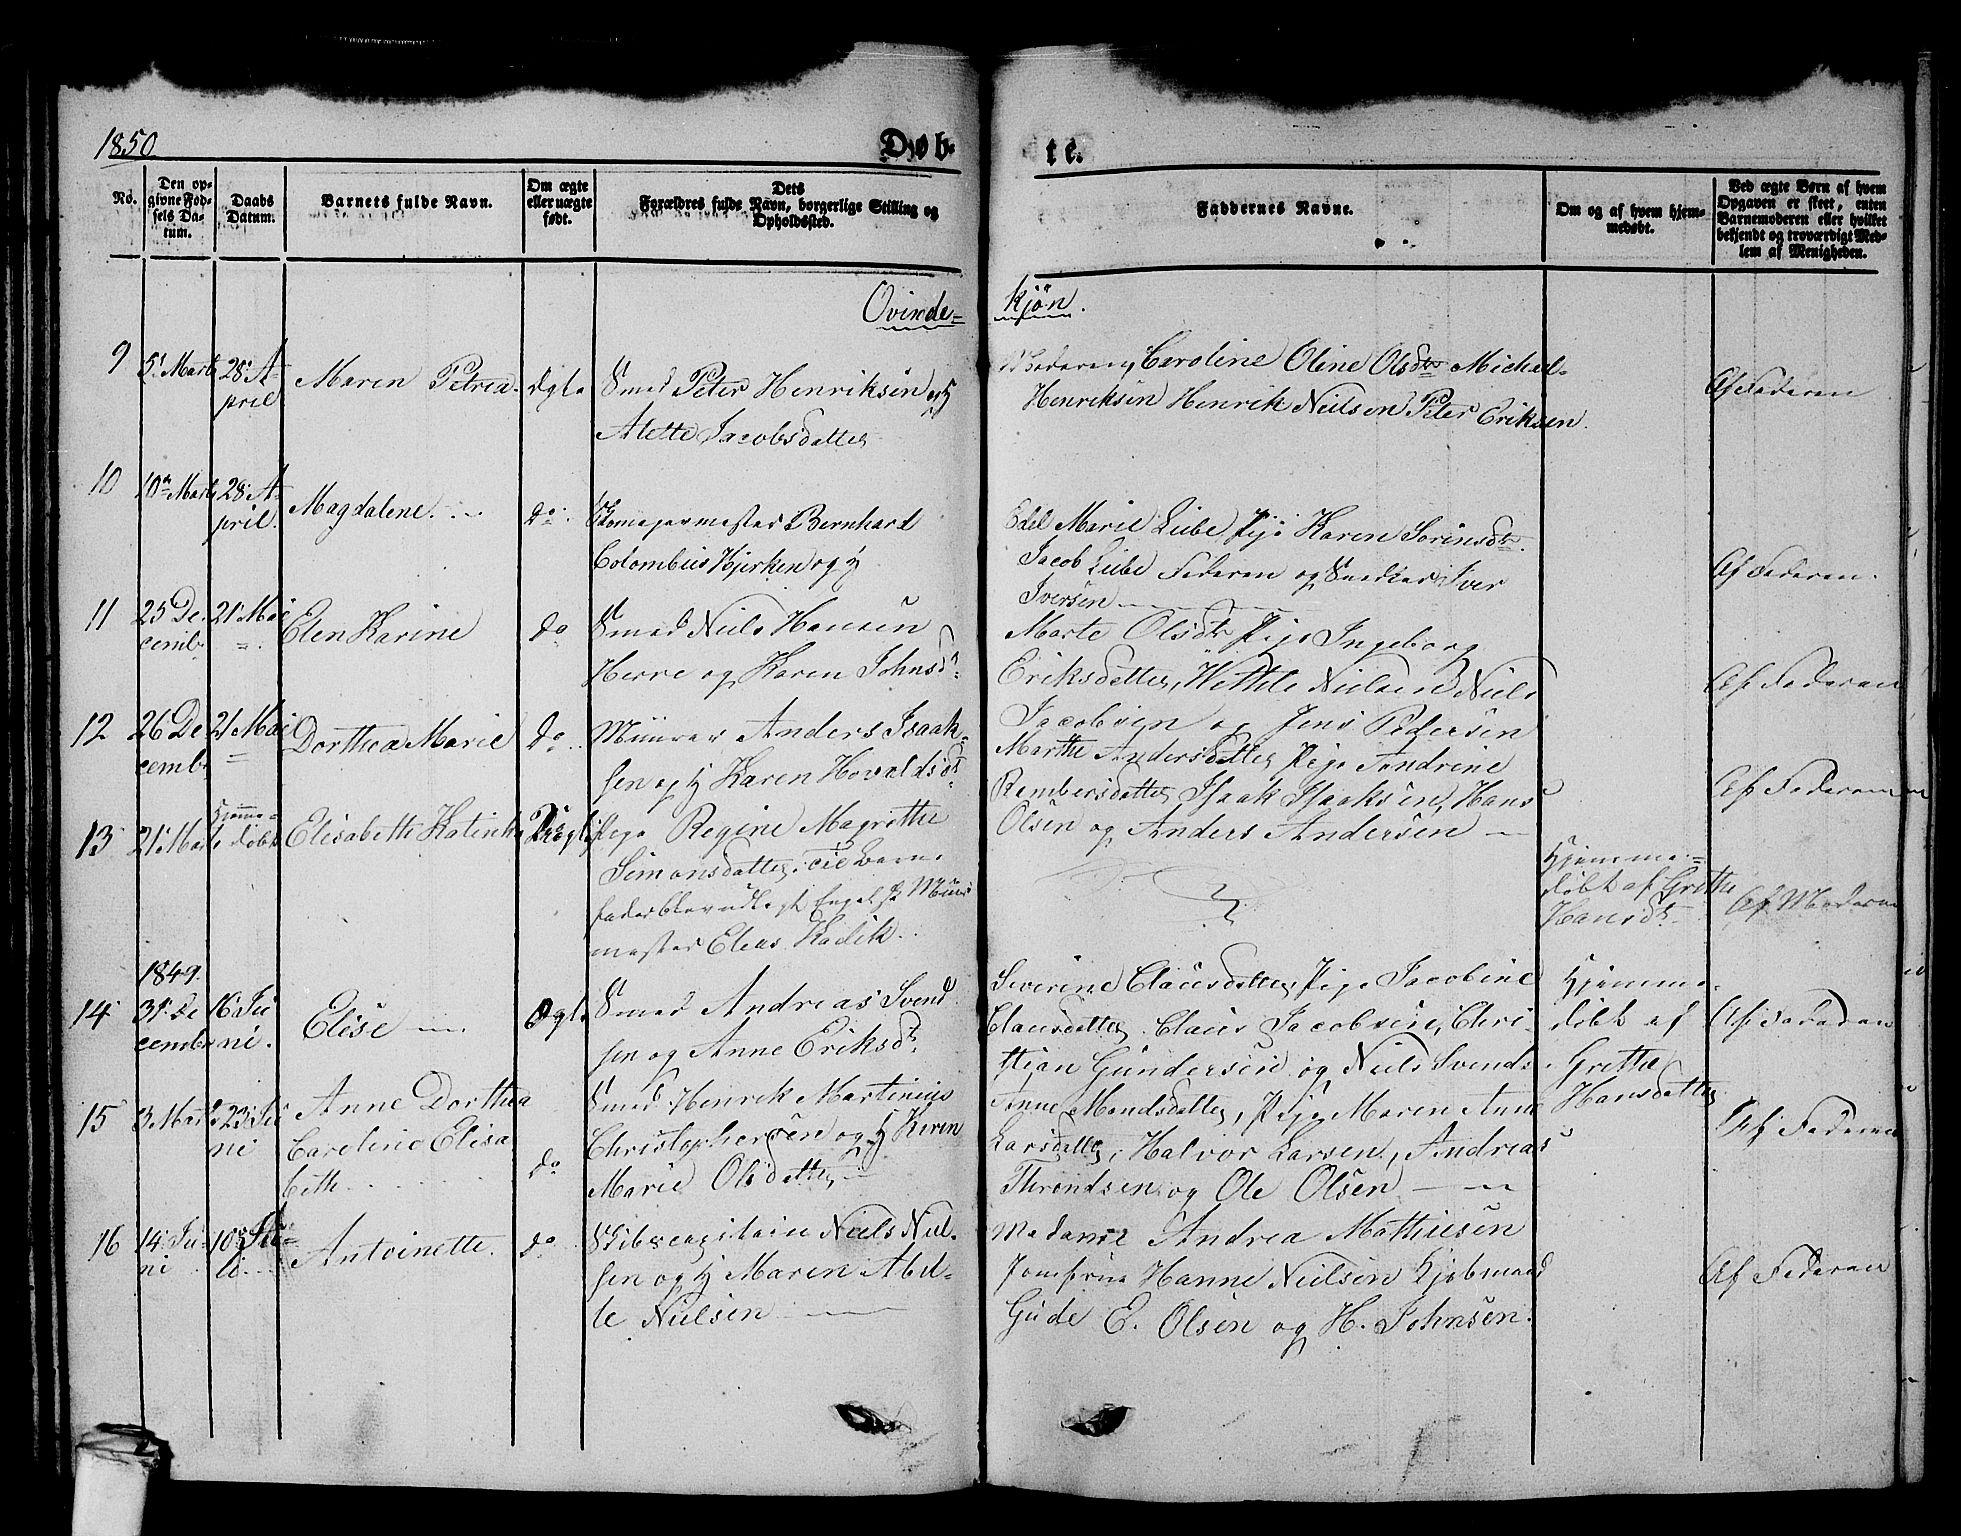 1850
Døb-
te.
No.
Den op-
givne Fød-
sels Da-
tum.
Daabs
Datum.
Barnets fulde Navn.
Om ægte
eller uægte
født.
Dets
Forældres fulde Navn, borgerlige Stilling og
Opholdssted.
Faddernes Navne.
Om og af hvem hjem-
medøbt.
Ved ægte Børn af hvem
Opgaven er skeet, enten
Barnemoderen eller hvilket
bekjendt og troværdigt Med-
lem af Menigheden.
Qvinde=
kjøn.
9
5. Marts
28. A-
pril
Maren Petrea.
Ægte
Smed Peter Henriksen og H
Alette Jacobsdatter
Moderen, Caroline Oline Olsdtr Michael
Henriksen Henrik Nielsen Peter Eriksen.
Af Faderen
10
10de Marts
28. A-
pril.
Magdalene.
do.
Bernhard
Colombus Hjerken og H
Edel Marie Lübe Pige Karen Sørensdtr.
Jacob Lübe Faderen og Snedker Iver
Iversen
Af Faderen.
11
25 De-
cemb.
21. Mai
Elen Karine
do
Smed Niels Hansen
Herre og Karen Johnsdt.
Marte Olsdtr Pige Ingeborg
Eriksdatter, Nielsen Niels
Jacobsen og Jens Pedersen
Af Faderen
12
26 De-
cemb.
21 Mai
Dorthea Marie
do
Muurer Anders Isaak-
sen og H Karen Hovaldsdt.
Marthe Andersdatter Pige Tandrine
Rembersdatter Isaak Isaaksen, Hans
Olsen og Anders Andersen
Af Faderen
13
21. Marts
Hjemme-
døbt
Elisabeth Katinka
Uægte
Pige Regine Magrethe
Simonsdatter, til Barne
fader blev udlagt Engelsk Muur
mester Elias Radik.
Hjemme-
døbt af Grethe
Hansdt.
Af Moderen
1849.
14
31. De
cembr
16 Ju
ni.
Elise
Ægte
Smed Andreas Svend
sen og Anne Eriksdt.
Severine Clausdatter, Pige Jacobine
Clausdatter, Claus Jacobsen, Chri-
stian Gundersen og Niels Svends.
Hjemme-
døbt af
Grethe
Hansdatter
Af Faderen
15
3 Marts
23. Ju
ni
Anne Dorthea
Caroline Elisa
beth
do
Smed Henrik Martinius
Christophersen og H Karen
Marie Olsdatter
Anne Mondsdatter, Pige Maren Anne
Larsdatter, Halvor Larsen, Andreas
Throndsen og Ole Olsen
Af Faderen
16
14. Ju-
ni
10. Ju-
li
Antoinette.
do
Skibscapitain Niels Niel-
sen og H Maren Abel-
le Nielsen
Madame Andrea Mathiesen
Jomfrue Hanne Nielsen Kjøbmand
Gude E. Olsen og H. Johnsen.
Af Faderen